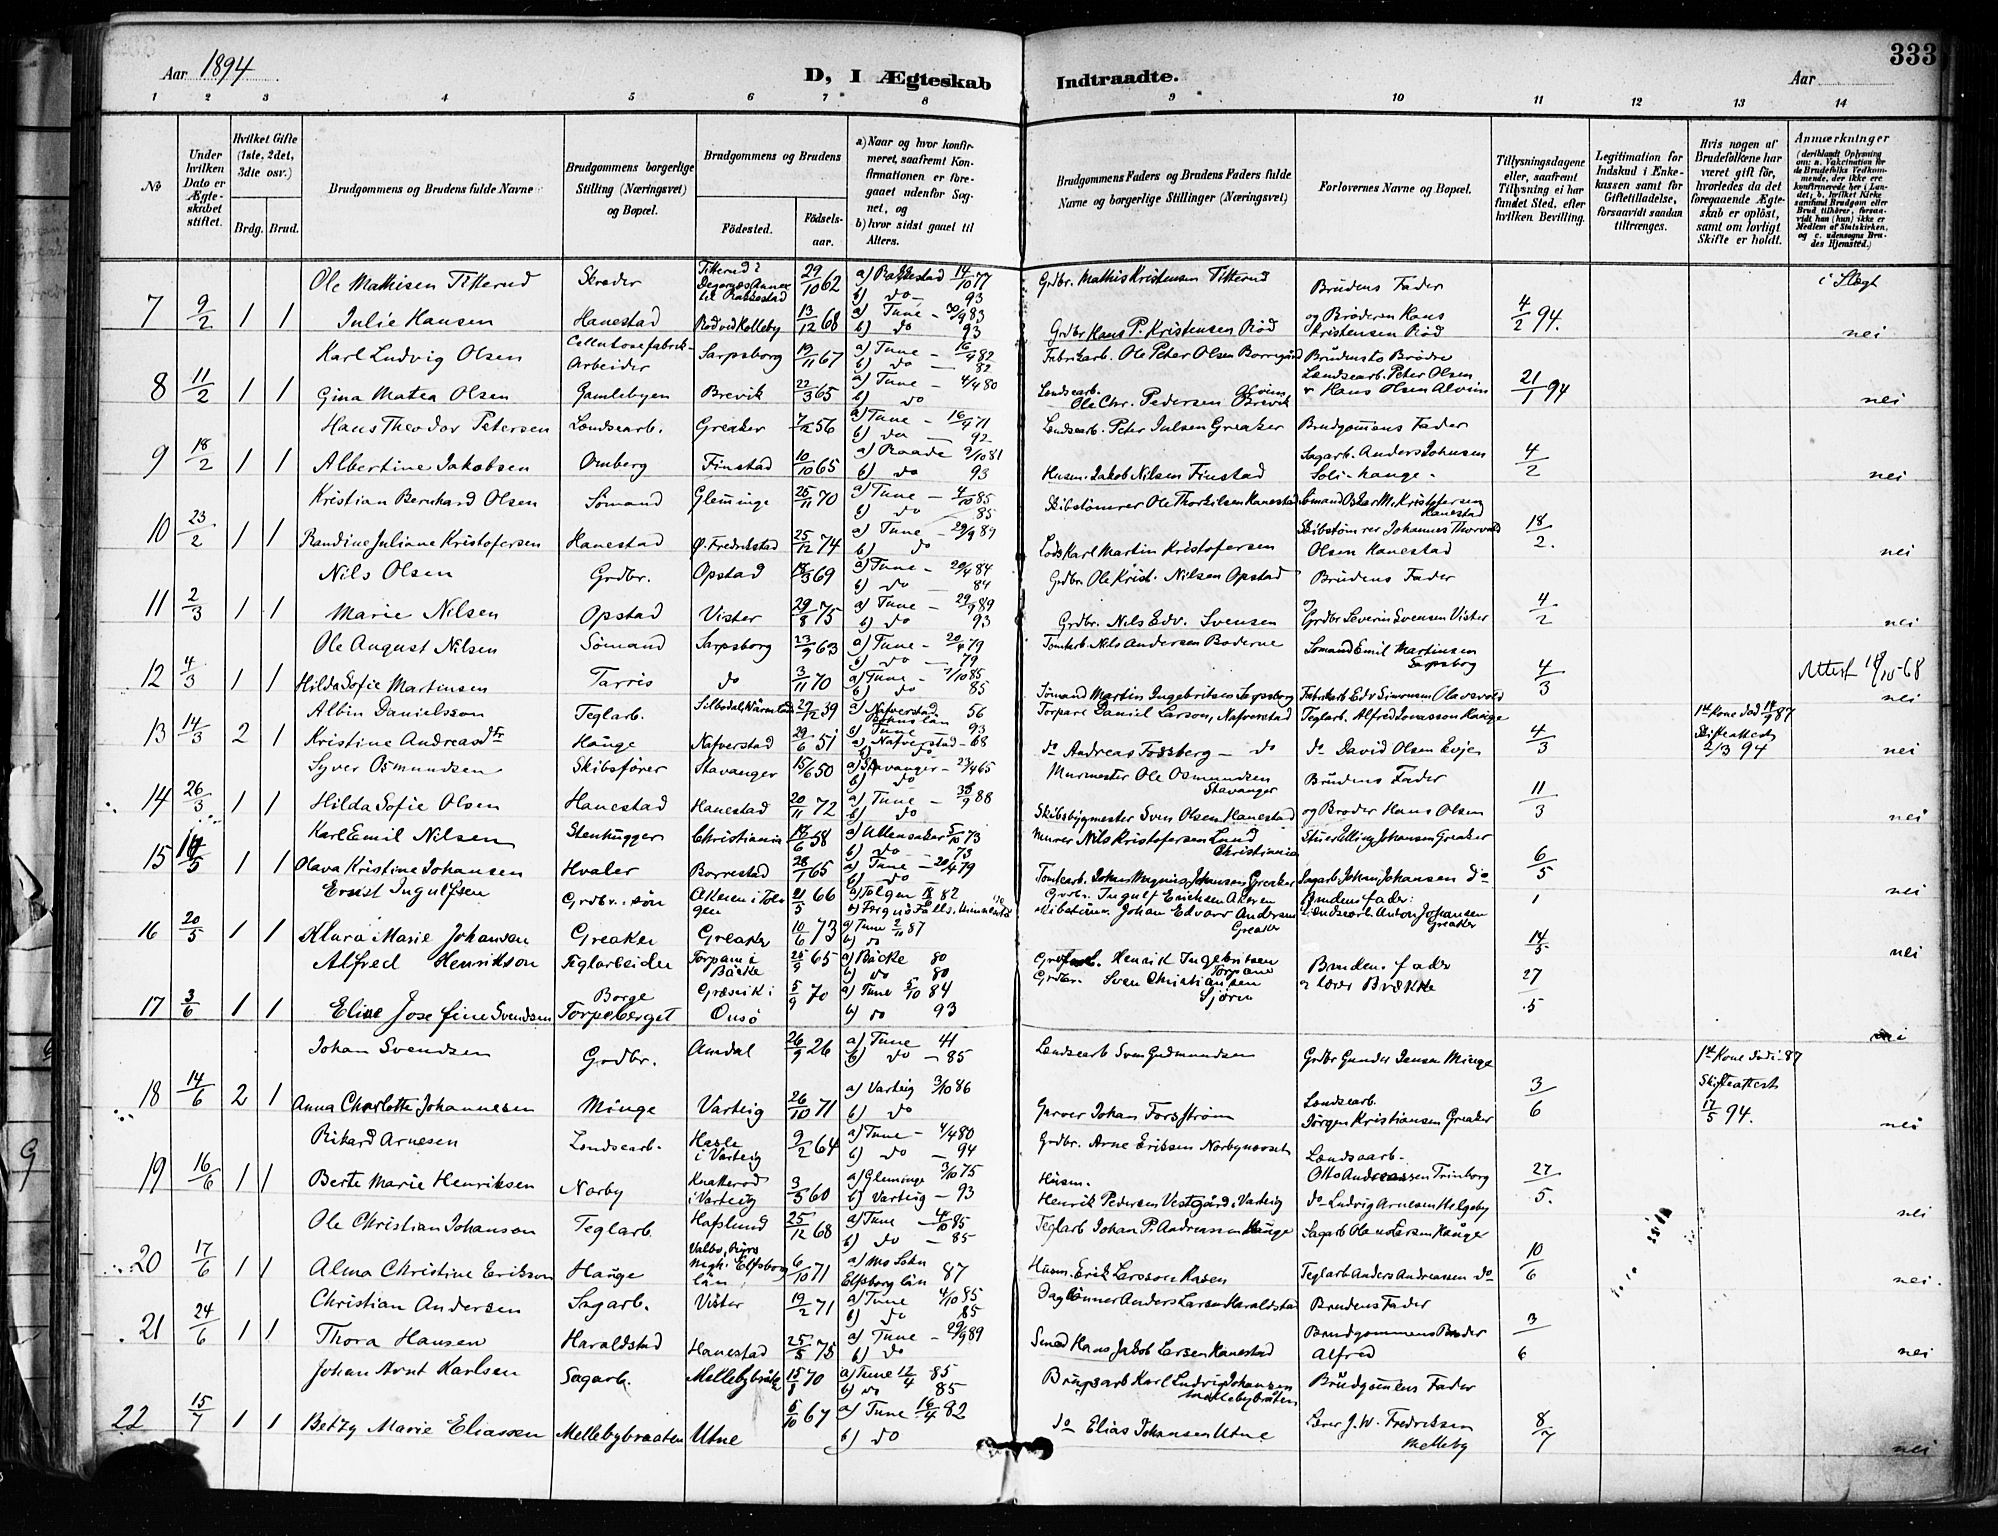 333
Aar 1894
D, I Ægteskab Indtraadte.
Aar
1 2 3 4 5 6 7 8 9 10 11 12 13 14
No
Under hvilken Dato er Ægteskabet stiftet.
Hvilket Gifte (1ste, 2det, 3dte osv.)
Brdg. Brud.
Brudgommens og Brudens fulde Navne
Brudgommens borgerlige Stilling (Næringsvei) og Bopæl.
Brudgommens og Brudens
Fødested.
Fødselsaar.
a) Naar og hvor konfirmeret, saafremt Konfirmationen er foregaaet udenfor Sognet, og
b) hvor sidst gaaet til Alters.
Brudgommens Faders og Brudens Faders fulde Navne og borgerlige Stillinger (Næringsvei)
Forlovernes Navne og Bopæl.
Tillysningsdagene eller, saafremt Tillysning ei har fundet Sted, efter hvilken Bevilling.
Legitimation for Indskud i Enkekassen samt for Giftetilladelse, forsaavidt saadan tiltrænges.
Hvis nogen af Brudefolkene har været gift før, hvorledes da det foregaaende Ægteskab er opløst, samt om lovligt Skifte er holdt.
Anmærkninger
(deriblandt Oplysning om: a. Vakcination for de Brudefolks Vedkommende, der ikke ere konfirmerede her i Landet; b. hvilket Kirkesamfund Brudgom eller Brud tilhører, forsaavidt han (hun) ikke er Medlem af Statskirken, og c. udensogns Brudes Hjemsted.)
Ole Mathisen Titterud Skræder Titterud i Degernæs Annex til Rakkestad 29/10 62 a) Rakkestad 14/10 77 b) do 93 Grdbr. Mathis Kristensen Titterud Brudens Fader i Slægt
7 9/2 1 1 Julie Hansen Hanestad Rød ved Kolleby 13/12 68 a) Tune 30/9 83 b) do 93 Grdbr Hans P. Kristensen Rød og Broderen Hans Kristensen Rød 4/2 94. nei
Karl Ludvig Olsen Cellulosefabrik-Arbeider Sarpsborg 19/11 67 a) Tune 16/9 82 b) do 82 Fabrikarb. Ole Peter Olsen Borregård Brudens to Brødre
8 11/2 1 1 Gina Matea Olsen Gamlebyen Brevik 22/3 65 a) Tune 4/4 80 b) do Landsearb. Ole Chr. Pedersen Brevik Landsearb. Peter Olsen & Hans Olsen Alvim 21/1 94 nei
Hans Theodor Petersen Landsearb. Greaker 7/12 56 a) Tune 16/9 71 b) do 92 Landsearb. Peter Julsen Greaker Brudgomens Fader
9 18/2 1 1 Albertine Jakobsen Omberg Finstad 10/10 65 a) Raade 2/10 81 b) do 93 Husm. Jakob Nilsen Finstad Sagarb. Anders Johnsen Soli-hauge 4/2 nei
Kristian Bernhard Olsen Sømand Gleminge 26/11 70 a) Tune 4/10 85 b) do 85 Skibstømrer Ole Thorkilsen Hanestad Sømand Oskar M. Kristofersen Hanestad
10 23/2 1 1 Randine Juliane Kristofersen Hanestad Ø. Fredrikstad 25/12 74 a) Tune 29/9 89 b) do Lods Karl Martin Kristofersen Skibstømrer Johannes Thorvald Olsen Hanestad 18/2. nei
Nils Olsen Grdbr. Opstad 18/3 69 a) Tune 20/4 84 b) do 84 Grdbr Ole Krist. Nilsen Opstad Brudens Fader
11 2/3 1 1 Marie Nilsen Opstad Vister 29/8 75 a) Tune 29/9 89 b) do 93 Grdbr. Nils Edv. Svensen og Grdbr Severin Svensen Vister 4/2 nei
Ole August Nilsen Sømand Sarpsborg 23/9 63 a) Tune 20/4 79 b) do 79 Tomtarb. Nils Andersen Boderne Sømand Emil Martinsen Sarpsborg
12 4/3 1 1 Hilda Sofie Martinsen Tarris do 3/11 70 a) Tune 4/10 85 b) do 85 Sømand Martin Ingebritsen Sarpsborg Fabrikarb. Edv Simonsen Olavsvold 4/3 Attest 18/10-68 nei
Albin Danielsson Teglarb. Silbodal, Värmland 29/12 39 a) Nafverstad Bohus län 56 b) Tune 93 Torpare Daniel Larson, Nafverstad Teglarb. Alfred Jonasson Hauge 1st Kone død 14/9 87
13 14/3 2 1 Kristine Andreasdtr Hauge Nafverstad 29/6 51 a) Nafverstad - 68 b) do do Andreas Fossberg - do do David Olsen Evje 4/3 Skifteattest 2/3 94 nei
Syver Osmundsen Skibsfører Stavanger 15/6 50 a) Stavanger 23/4 65 b) do Murmester Ole Osmundsen Stavanger Brudens Fader
14 26/3 1 1 Hilda Sofie Olsen Hanestad Hanestad 20/11 72 a) Tune 30/9 88 b) do Skibsbygmester Sven Olsen Hanestad og Broder Hans Olsen 11/3 nei
Karl Emil Nilsen Stenhugger Christiania 18/6 58 a) Ullensaker 5/10 73 b) do 73 Murer Nils Kristofersen Lund Christiania Elling Johansen Greaker
15 /5 1 1 Olava Kristine Johansen Hvaler Borrestad 28/1 65 a) Tune 20/4 79 b) do Tomtearb. Johan Magnus Johansen Greaker Sagarb Johan Johansen do 6/5 nei
Ernst Ingulfsen Grdbr. søn Aasen i Tolgen 21/5 66 a) Tolgen 82 b) Fergus Falls, Minnesota Grdbr. Ingulf Erichsen Aasen Brudens fader: 1
16 20/5 1 1 Klara Marie Johansen Greaker Greaker 10/6 73 a) Tune 2/10 87 b) do Skibstømr. Johan Edvard Andersen Greaker Landsearb Anton Johansen Greaker 14/5 nei
Alfred Henrikson Teglarbeider Torpane i Bäcke 25/9 65 a) Bäcke 80 b) do 80 Henrik Ingebritsen Torpane Brudens fader 27
17 3/6 1 1 Elise Josefine Svendsen Borge Torpeberget Græsvik i Onsø 5/9 70 a) Tune 5/10 84 b) do 93 Grdbr. Sven Christiansen Sjøvn & Lærer Brække 5 nei
Johan Svendsen Grdbr. Amdal 26/9 26 a) Tune 41 b) do - 85 Landsearb Sven Gudmundsen Grdbr Gunder Jensen Minge 1st Kone død i - 87
18 14/6 2 1 Anna Charlotte Johannesen Minge Varteig 26/10 71 a) Varteig 3/10 86 b) do Garver Johan Forsstrøm Landsearb. Jørgen Kristiansen Greaker 3/6 Skifteattest 17/5 94. nei
Rikard Arnesen Landsearb. Hasle i Varteig 9/2 64 a) Tune 4/4 80 b) do - 94 Grdbr. Arne Eriksen Norbyneset Landsearb. Otto Andreassen Trinborg
19 16/6 1 1 Berte Marie Henriksen Norby Knatterød i Varteig 3/5 60 a) Gleminge 3/10 75 b) Varteig - 93 Husm. Henrik Pedersen Vestgård i Varteig do Ludvig Arnesen Helgeby 27/5. nei
Ole Christian Johanson Teglarb. Hafslund 25/12 68 a) Tune 4/10 85 b) do - 85 Teglarb Johan P. Andreassen Hauge Sagarb Ole Larsen Hauger
20 17/6 1 1 Alma Christine Erikson Hauge Elfsborg län 6/10 71 a) Mo Sokn Elfsborg län 87 Husm. Erik Larsson Rasen Teglarb Anders Andreassen do 10/6 nei.
Christian Andersen Sagarb. Vister 19/2 71 a) Tune 4/10 85 b) do 85 Daglønner Anders Larsen Haraldstad Brudens Fader
21 24/6 1 1 Thora Hansen Haraldstad Hanestad 25/5 75 a) Tune - 29/9 89 b) do Smed Hans Jakob Larsen Hanestad Brudgommens Broder Alfred 3/6 nei
Johan Arnt Karlsen Sagarb. Mellebybråten 15/8 70 a) Tune 12/4 85 b) do 85 Brugsarb Karl Ludvig Johansen Mellebybråten Brudgomens Fader
22 15/7 1 1 Betzy Marie Eliassen Mellebybraaten Utne 5/10 67 a) Tune 16/4 82 b) do do Elias Johansen Utne Lærer J. W. Fredriksen Melleby 8/7 nei